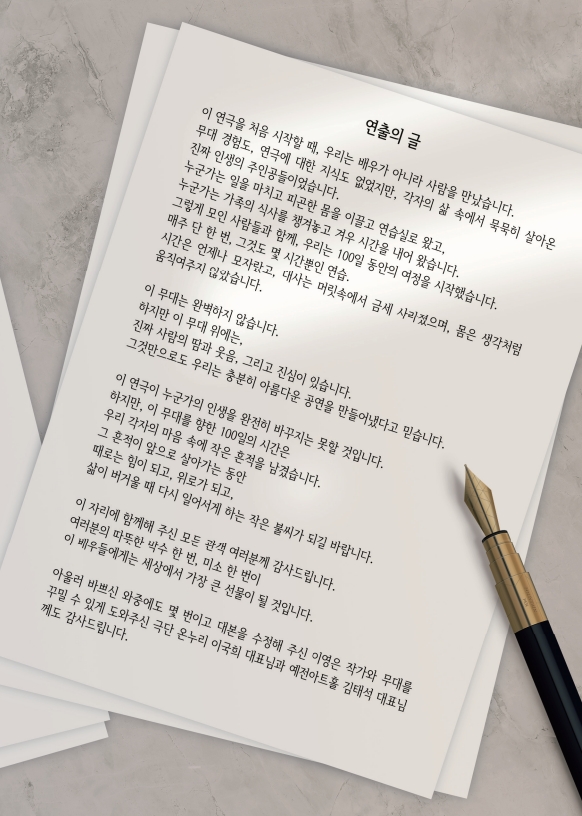 연출의 글
이 연극을 처음 시작할 때, 우리는 배우가 아니라 사람을 만났습니다.
무대 경험도, 연극에 대한 지식도 없었지만, 각자의 삶 속에서 묵묵히 살아온
진짜 인생의 주인공들이었습니다.
누군가는 일을 마치고 피곤한 몸을 이끌고 연습실로 왔고,
누군가는 가족의 식사를 챙겨놓고 겨우 시간을 내어 왔습니다.
그렇게 모인 사람들과 함께, 우리는 100일 동안의 여정을 시작했습니다.
매주 단 한 번, 그것도 몇 시간뿐인 연습.
시간은 언제나 모자랐고, 대사는 머릿속에서 금세 사라졌으며, 몸은 생각처럼
움직여주지 않았습니다.
이 무대는 완벽하지 않습니다.
하지만 이 무대 위에는,
진짜 사람의 땀과 웃음, 그리고 진심이 있습니다.
그것만으로도 우리는 충분히 아름다운 공연을 만들어냈다고 믿습니다.
이 연극이 누군가의 인생을 완전히 바꾸지는 못할 것입니다.
하지만, 이 무대를 향한 100일의 시간은
우리 각자의 마음 속에 작은 흔적을 남겼습니다.
그 흔적이 앞으로 살아가는 동안
때로는 힘이 되고, 위로가 되고,
삶이 버거울 때 다시 일어서게 하는 작은 불씨가 되길 바랍니다.
이 자리에 함께해 주신 모든 관객 여러분께 감사드립니다.
여러분의 따뜻한 박수 한 번, 미소 한 번이
이 배우들에게는 세상에서 가장 큰 선물이 될 것입니다.
아울러 바쁘신 와중에도 몇 번이고 대본을 수정해 주신 이영은 작가와 무대를
꾸밀 수 있게 도와주신 극단 온누리 이국희 대표님과 예전아트홀 김태석 대표님
께도 감사드립니다.